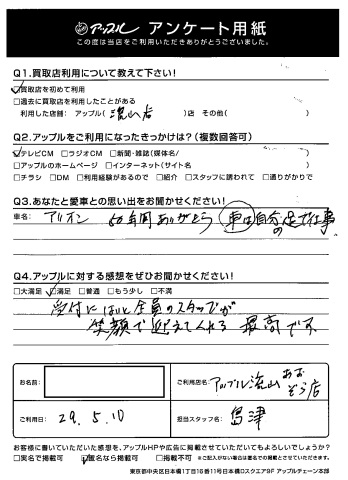 アップル アンケート用紙
この度は当店をご利用いただきありがとうございました。
Q1.買取店利用について教えて下さい!
☑買取店を初めて利用
□過去に買取店を利用したことがある
利用した店舗: アップル( 流山店 )店 その他( )
Q2.アップルをご利用になったきっかけは?(複数回答可)
☑テレビCM □ラジオCM □新聞・雑誌(媒体名/ )
□アップルのホームページ □インターネット(サイト名 )
□チラシ □DM □利用経験があるので □紹介 □スタッフに誘われて □通りがかりで
Q3.あなたと愛車との思い出をお聞かせください!
車名: アリオン 年間ありがとう 車は自分の足で仕事
Q4.アップルに対する感想をぜひお聞かせください!
□大満足 ☑満足 □普通 □もう少し □不満
受付にはいと全員のスタッフが
笑顔で迎えてくれる 最高です
お名前:
ご利用店名: アップル流山おおぞら店
ご利用日: 29.5.10
担当スタッフ名: 島津
お客様に書いていただいた感想を、アップルHPや広告に掲載させていただいてもよろしいでしょうか?
□実名で掲載可 ☑匿名なら掲載可 □掲載不可 ※ご記入がない場合は匿名での掲載とさせていただきます。
東京都中央区日本橋1丁目16番11号日本橋Dスクエア9F アップルチェーン本部